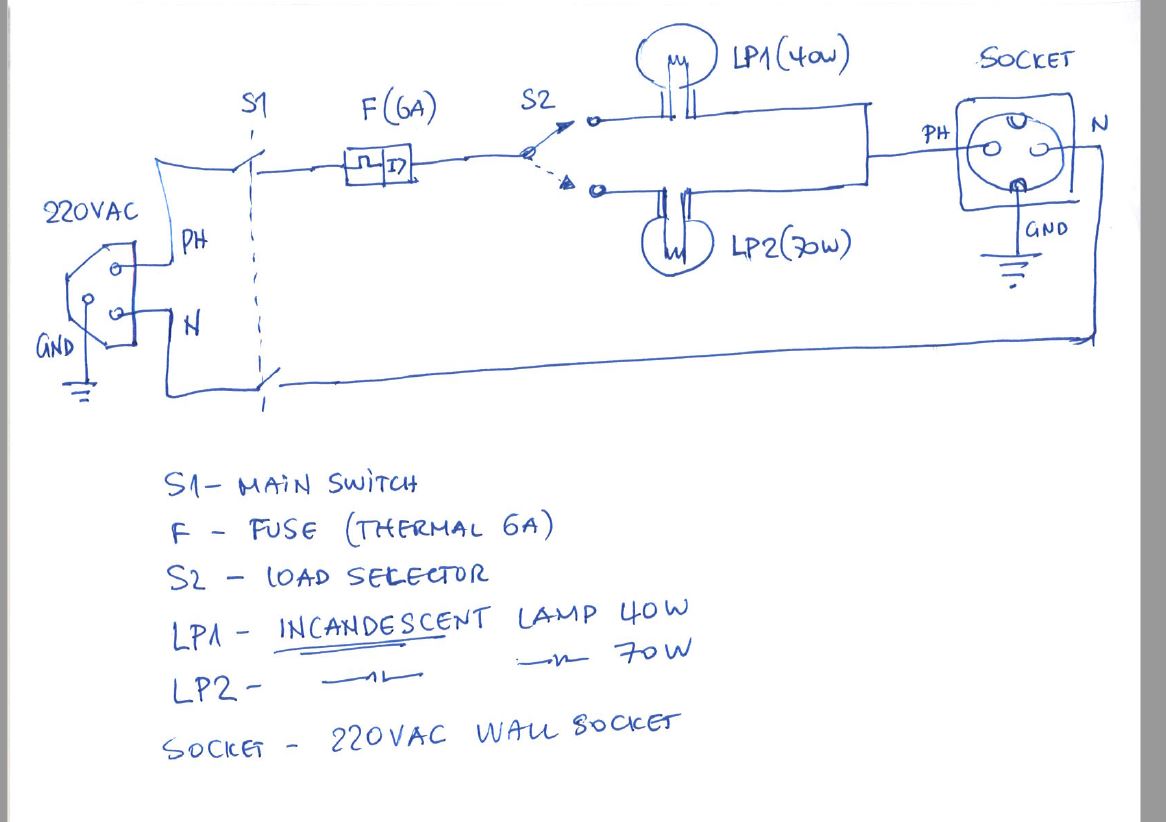 S1
F(6A)
S2
LP1(40W)
SOCKET
PH
N
220VAC
PH
N
GND
LP2(70W)
GND
S1 - MAIN SWITCH
F - FUSE (THERMAL 6A)
S2 - LOAD SELECTOR
LP1 - INCANDESCENT LAMP 40W
LP2 - 70W
SOCKET - 220VAC WALL SOCKET